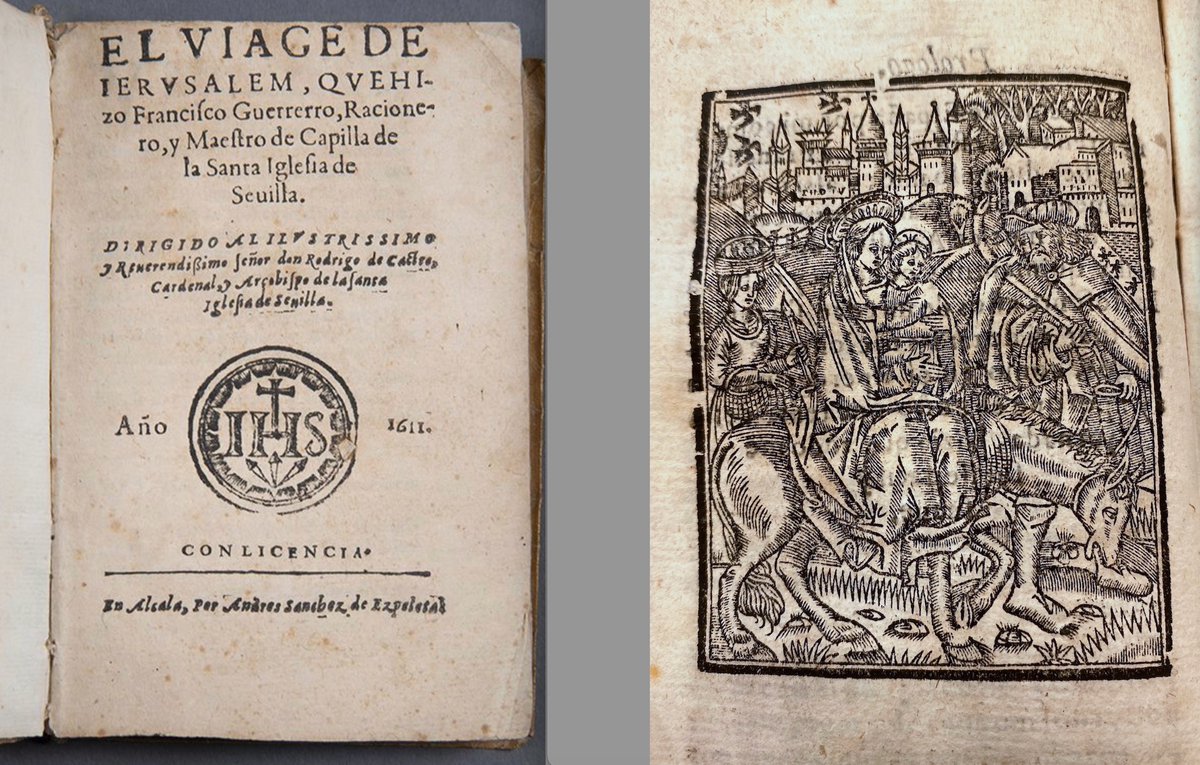 EL VIAGE DE
IERVSALEM, QVE HI-
zo Franciſco Guerrerro, Racione-
ro, y Maeſtro de Capilla de
la Santa Igleſia de
Seuilla.
DIRIGIDO AL ILVSTRISSIMO
y Reuerendißimo ſeñor don Rodrigo de Caſtro,
Cardenal, y Arçobiſpo de la ſanta
Igleſia de Seuilla.
Año
IHS
1611.
CON LICENCIA.
En Alcala, Por Andres Sanchez de Ezpeleta
Prologo,